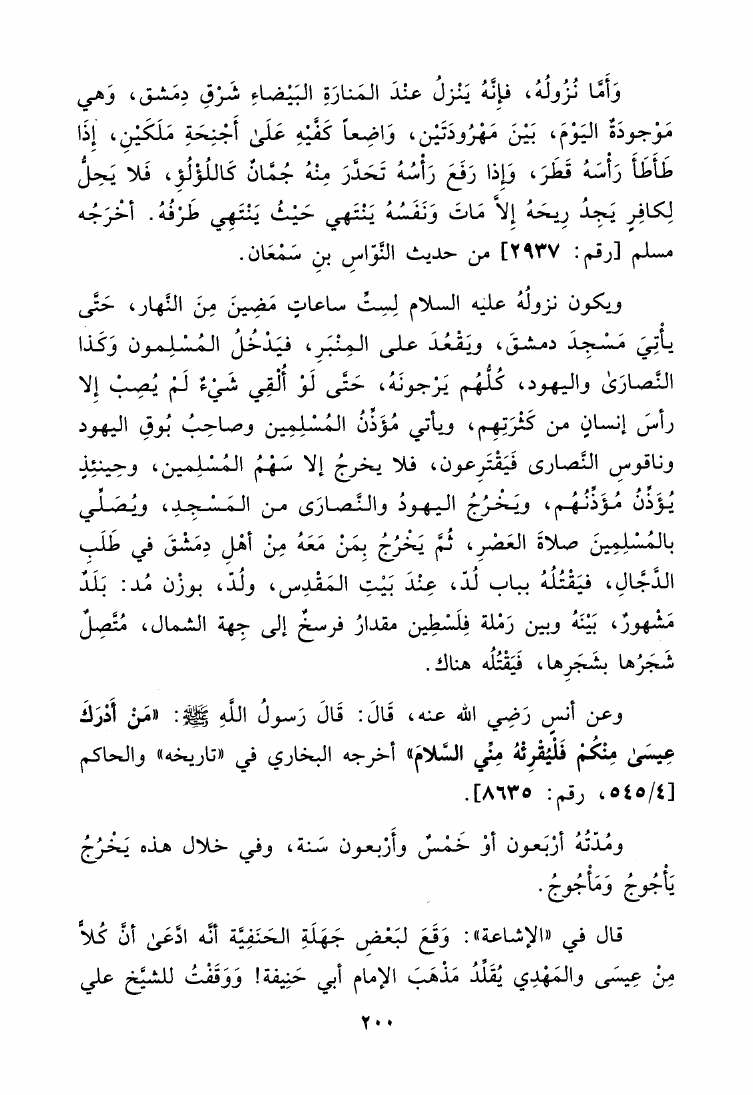 وَأَمَّا نُزُولُهُ، فإنَّهُ يَنْزِلُ عنْدَ المَنارَةِ البَيْضاءِ شَرْقِ دِمَشق، وَهي
مَوْجودَةٌ اليَوْمَ، بَيْنَ مَهْرُودَتَيْن، وَاضِعاً كَفَّيْهِ عَلَىٰ أَجْنِحَةِ مَلَكَيْنِ، إذَا
طَأطَأَ رَأسَهُ قَطَرَ، وَإذا رَفَعَ رَأْسُهُ تَحَدَّرَ مِنْهُ جُمَّانٌ كَاللُؤْلُؤِ، فَلا يَحِلُّ
لِكافِرٍ يَجِدُ رِيحَهُ إلاَّ مَاتَ وَنَفَسُهُ يَنْتَهي حَيْثُ يَنْتَهِي طَرْفُهُ. أخْرَجُه
مسلم [رقم: ٢٩٣٧] من حديث النَّوّاسِ بنِ سَمْعَان.
ويكون نزولُهُ عليه السلام لِسِتِّ ساعاتٍ مَضِينَ مِنَ النَّهار، حَتَّى
يأْتِيَ مَسْجِدَ دمشقَ، ويَقْعُدَ على المِنْبَرِ، فيَدْخُلُ المُسْلِمون وَكَذا
النَّصارَىٰ واليهود، كُلُّهُم يَرْجونَهُ، حَتَّى لَوْ أُلْقِي شَيْءٌ لَمْ يُصِبْ إلا
رأسَ إنسانٍ من كَثْرَتِهِم، ويأتي مُؤَذِّنُ المُسْلِمِين وصاحِبُ بُوقِ اليهود
وناقوسِ النَّصارى فَيَقْتَرِعون، فلا يخرجُ إلا سَهْمُ المُسْلِمين، وحِينئِذٍ
يُؤَذِّنُ مُؤَذِّنُهُم، ويَخْرُجُ اليهودُ والنَّصارَى من المَسْجِدِ، ويُصَلِّي
بالمُسْلِمِينَ صلاةَ العَصْرِ، ثُمَّ يَخْرُجُ بِمَنْ مَعَهُ مِنْ أهْلِ دِمَشْقَ في طَلَبِ
الدَّجَّالِ، فيَقْتُلُهُ بباب لُدّ، عِنْدَ بَيْتِ المَقْدِس، ولُدّ، بوزْن مُد: بَلَدٌ
مَشْهورٌ، بَيْنَهُ وبين رَمْلة فِلَسْطِين مقدارُ فرسخٌ إلى جِهة الشمال، مُتَّصِلٌ
شَجَرُها بشَجَرِها، فَيَقْتُلُه هناك.
وعن أنسٍ رَضِي الله عنه، قَالَ: قَالَ رَسولُ اللَّهِ ﷺ: «مَنْ أَدْرَكَ
عِيسَىٰ مِنْكُمْ فَلْيُقْرِئْهُ مِنِّي السَّلامَ» أخرجه البخاري في «تاريخه» والحاكم
[٥٤٥/٤، رقم: ٨٦٣٥].
ومُدّتُهُ أرْبَعون أوْ خَمْسٌ وأَرْبعون سَنة، وفي خلال هذه يَخْرُجُ
يَأْجُوجُ وَمَأْجُوجُ.
قال في «الإشاعة»: وَقَعَ لبَعْضِ جَهَلَةِ الحَنَفِيَّة أنَّه ادَّعَىٰ أنَّ كُلاًّ
مِنْ عِيسَى والمَهْدِي يُقَلِّدُ مَذْهَبَ الإمام أبي حَنِيفة! وَوَقَفْتُ للشَّيْخ علي
٢٠٠